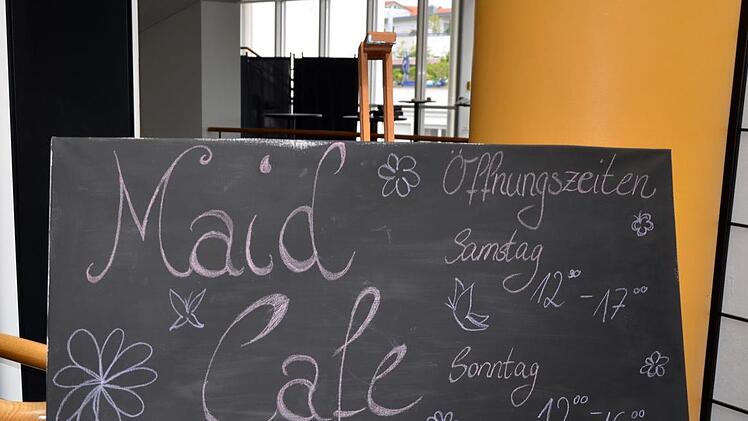 Maid
Cafe
Öffnungszeiten
Samstag
12⁰⁰ - 17⁰⁰
Sonntag
12⁰⁰ - 16⁰⁰